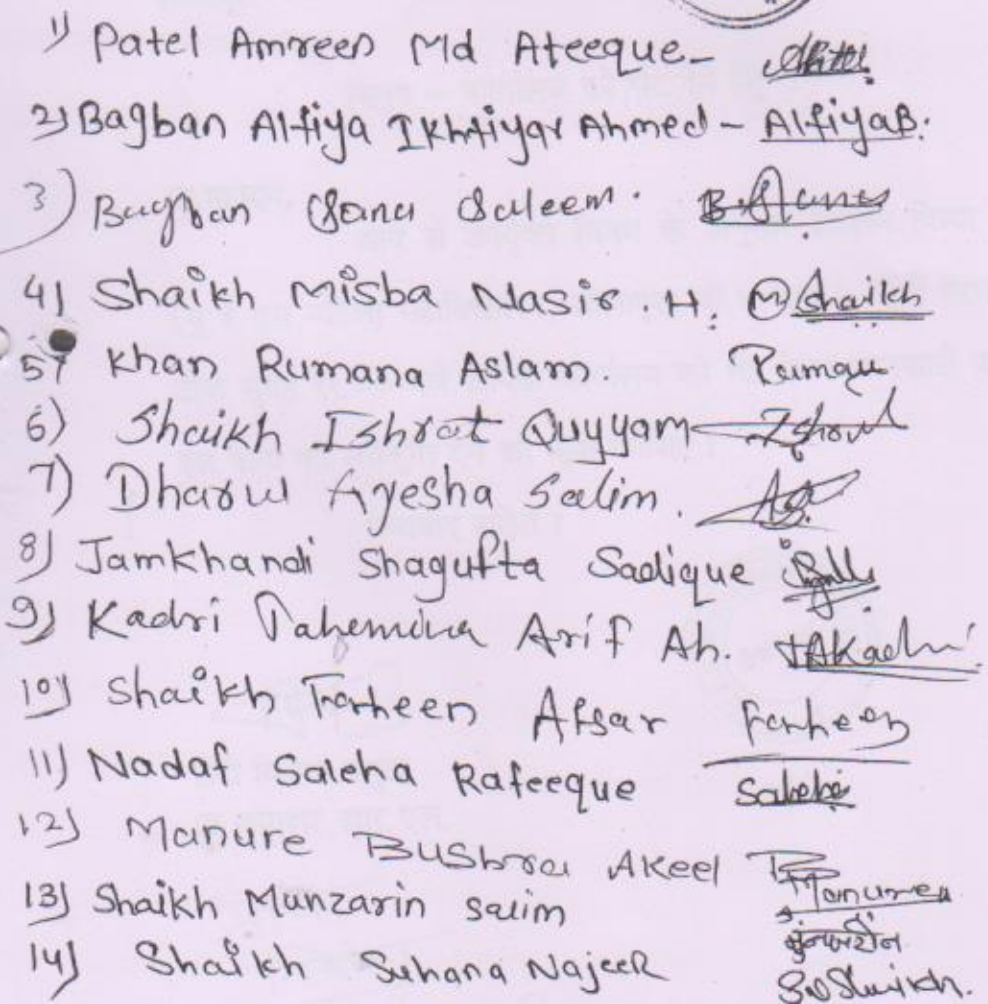 1) Patel Amreen Md Ateeque-
2) Bagban Alfiya Ikhtiyar Ahmed - AlfiyaB.
3) Bagban Sana Saleem. B.Sana
4) Shaikh Misba Nasir. H. M. Shaikh
5) Khan Rumana Aslam.
6) Shaikh Ishrat Quyyam
7) Dharwl Ayesha Salim.
8) Jamkhandi Shagufta Sadique
9) Kadri Tahemina Arif Ah. TAKadri
10) Shaikh Farheen Afsar Farheen
11) Nadaf Saleha Rafeeque
12) Manure Bushra Akeel
13) Shaikh Munzarin salim
14) Shaikh Suhana Najeer S.Shaikh.